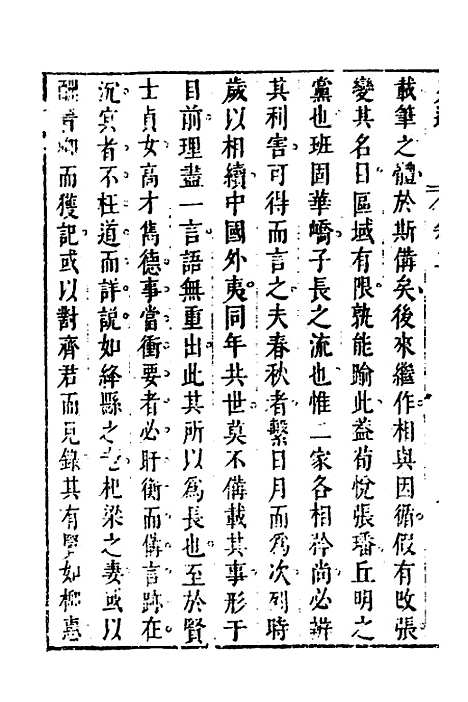 載筆之體於斯備矣後來繼作相與因循假有改張
變其名目區域有限孰能踰此蓋荀悅張璠丘明之
黨也班固華嶠子長之流也惟二家各相矜尚必辨
其利害可得而言之夫春秋者繫日月而爲次列時
歲以相續中國外夷同年共世莫不備載其事形于
目前理盡一言語無重出此其所以爲長也至於賢
士貞女高才雋德事當衝要者必盱衡而備言跡在
沉冥者不枉道而詳說如絳縣之老杞梁之妻或以
而獲記或以對齊君而見錄其有賢如柳惠